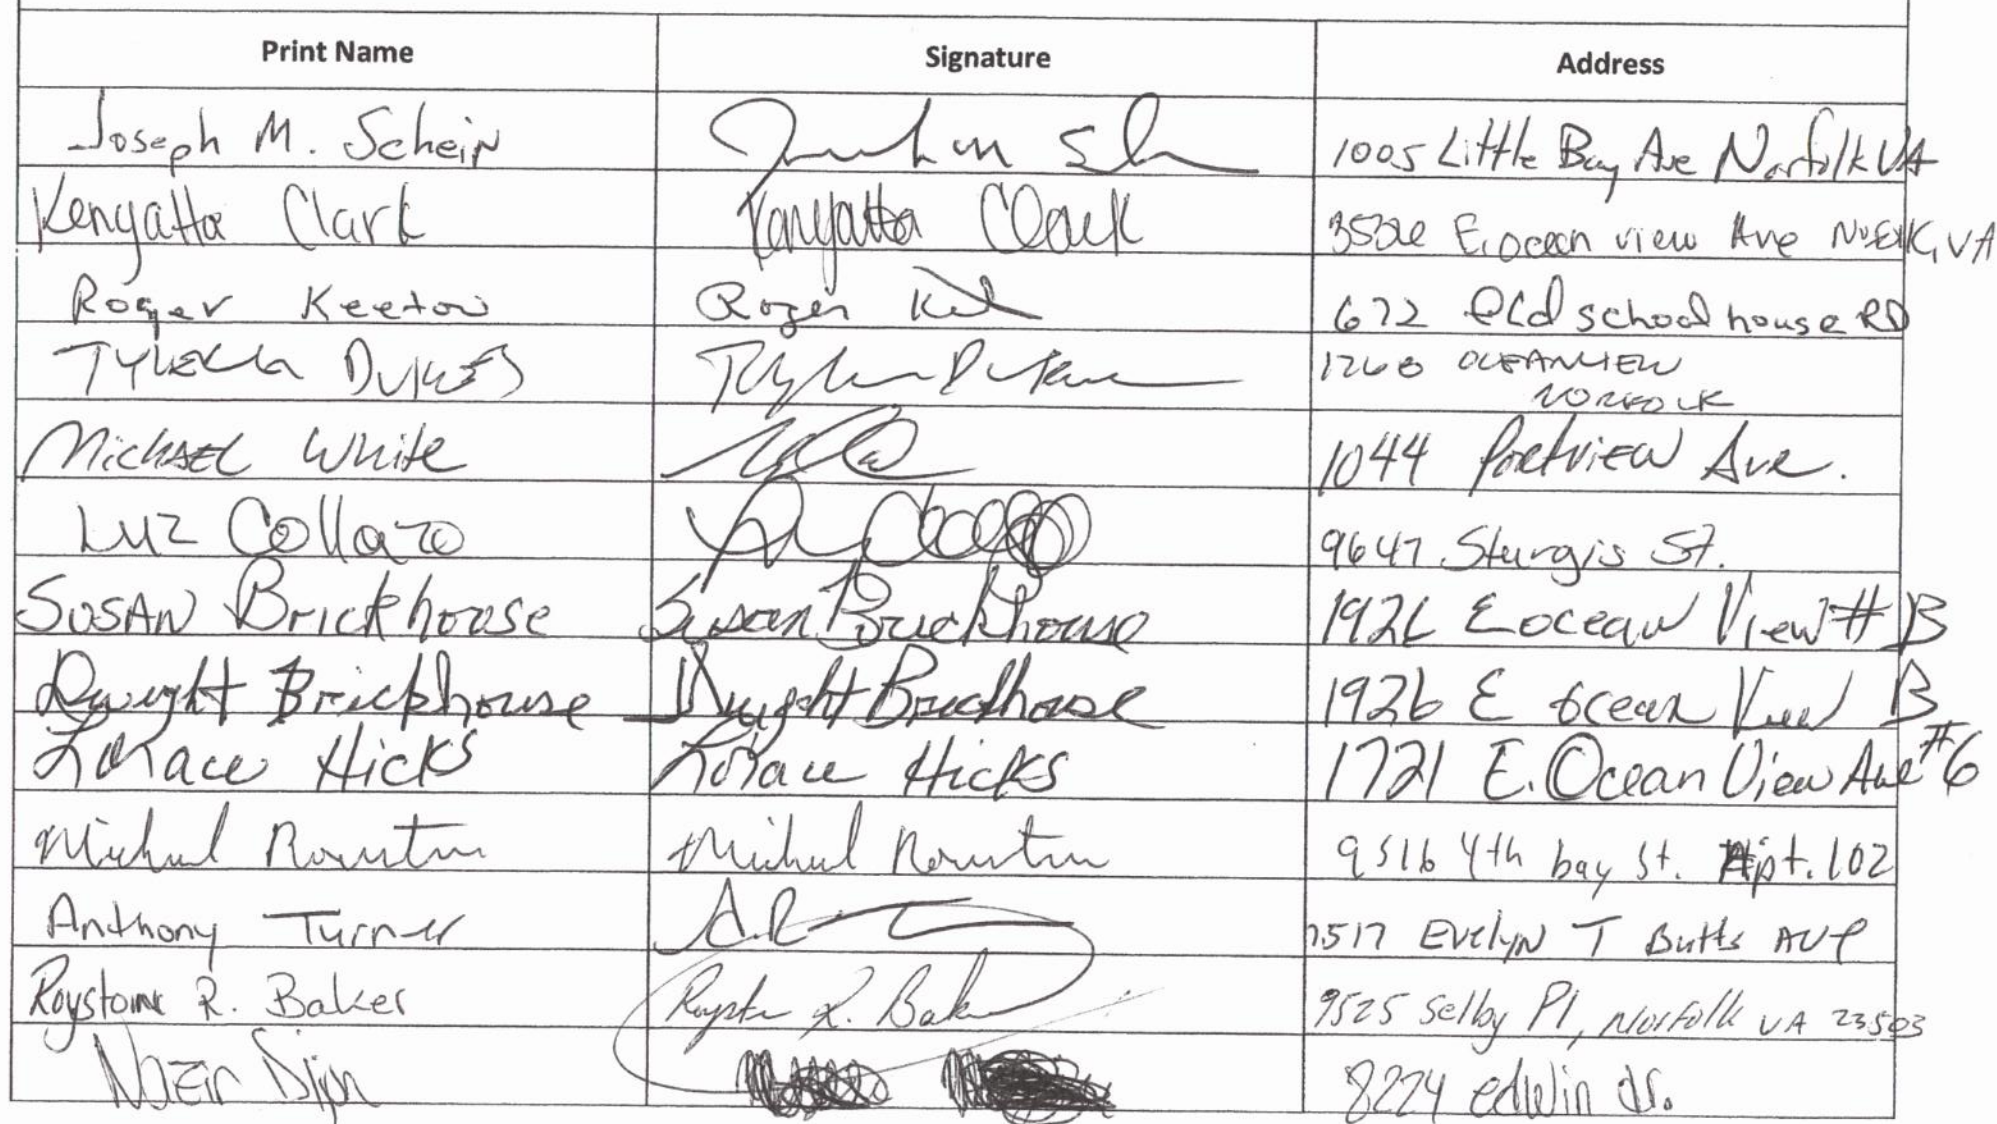 Print Name Signature Address
Joseph M. Schein 1005 Little Bay Ave Norfolk VA
Kenyatta Clark Kenyatta Clark E. Ocean view Ave VA
Roger Keeton Roger 672 Old school house RD
DUKES 1260 OCEANVIEW
NORFOLK
Michael White 1044 Portview Ave.
Luz Collazo 9647 Sturgis St.
SUSAN Brickhouse Susan Brickhouse 1926 E ocean View # B
Dwight Brickhouse Dwight Brickhouse 1926 E ocean View B
Lorace Hicks Lorace Hicks 1721 E. Ocean View Ave #6
Michael Michael 9516 4th bay St. Apt. 102
Anthony Turner Evelyn T Butts AVE
R. Baker R. Baker 9525 Selby Pl, Norfolk VA 23503
8224 edwin dr.